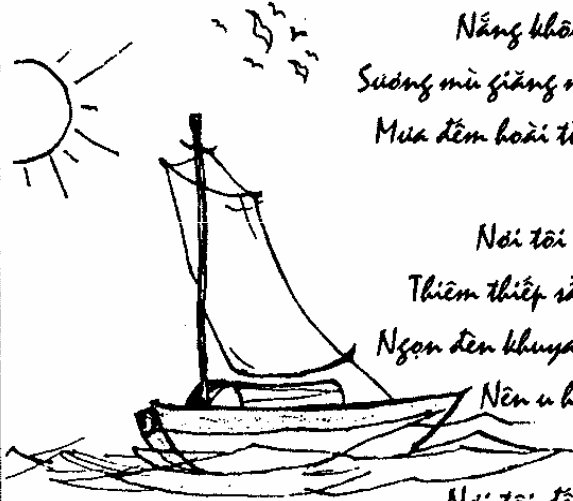 Nắng khô
Sương mù giăng
Mưa đêm hoài
Nơi tôi
Thiêm thiếp
Ngọn đèn khuya
Nên u
Nơi tôi